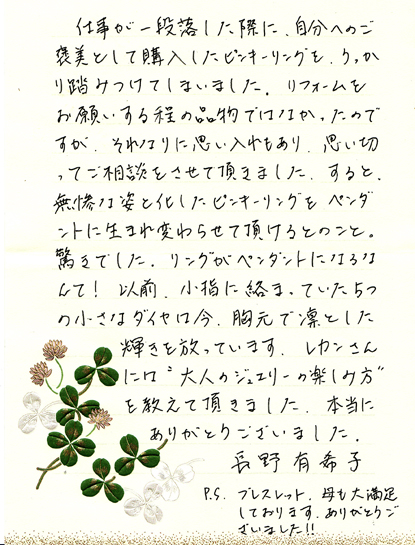 仕事が一段落した際に、自分へのご
褒美として購入したピンキーリングを、うっか
り踏みつけてしまいました。リフォームを
お願いする程の品物ではなかったので
すが、それなりに思い入れもあり、思い切
ってご相談をさせて頂きました。すると、
無惨な姿と化したピンキーリングをペンダ
ントに生まれ変わらせて頂けるとのこと。
驚きでした。リングがペンダントになるな
んて！以前、小指に絡まっていた5つ
の小さなダイヤは今、胸元で凛とした
輝きを放っています。レカンさん
には"大人のジュエリーの楽しみ方"
を教えて頂きました。本当に
ありがとうございました。
長野有希子
P.S. ブレスレット、母も大満足
しております。ありがとうご
ざいました!!